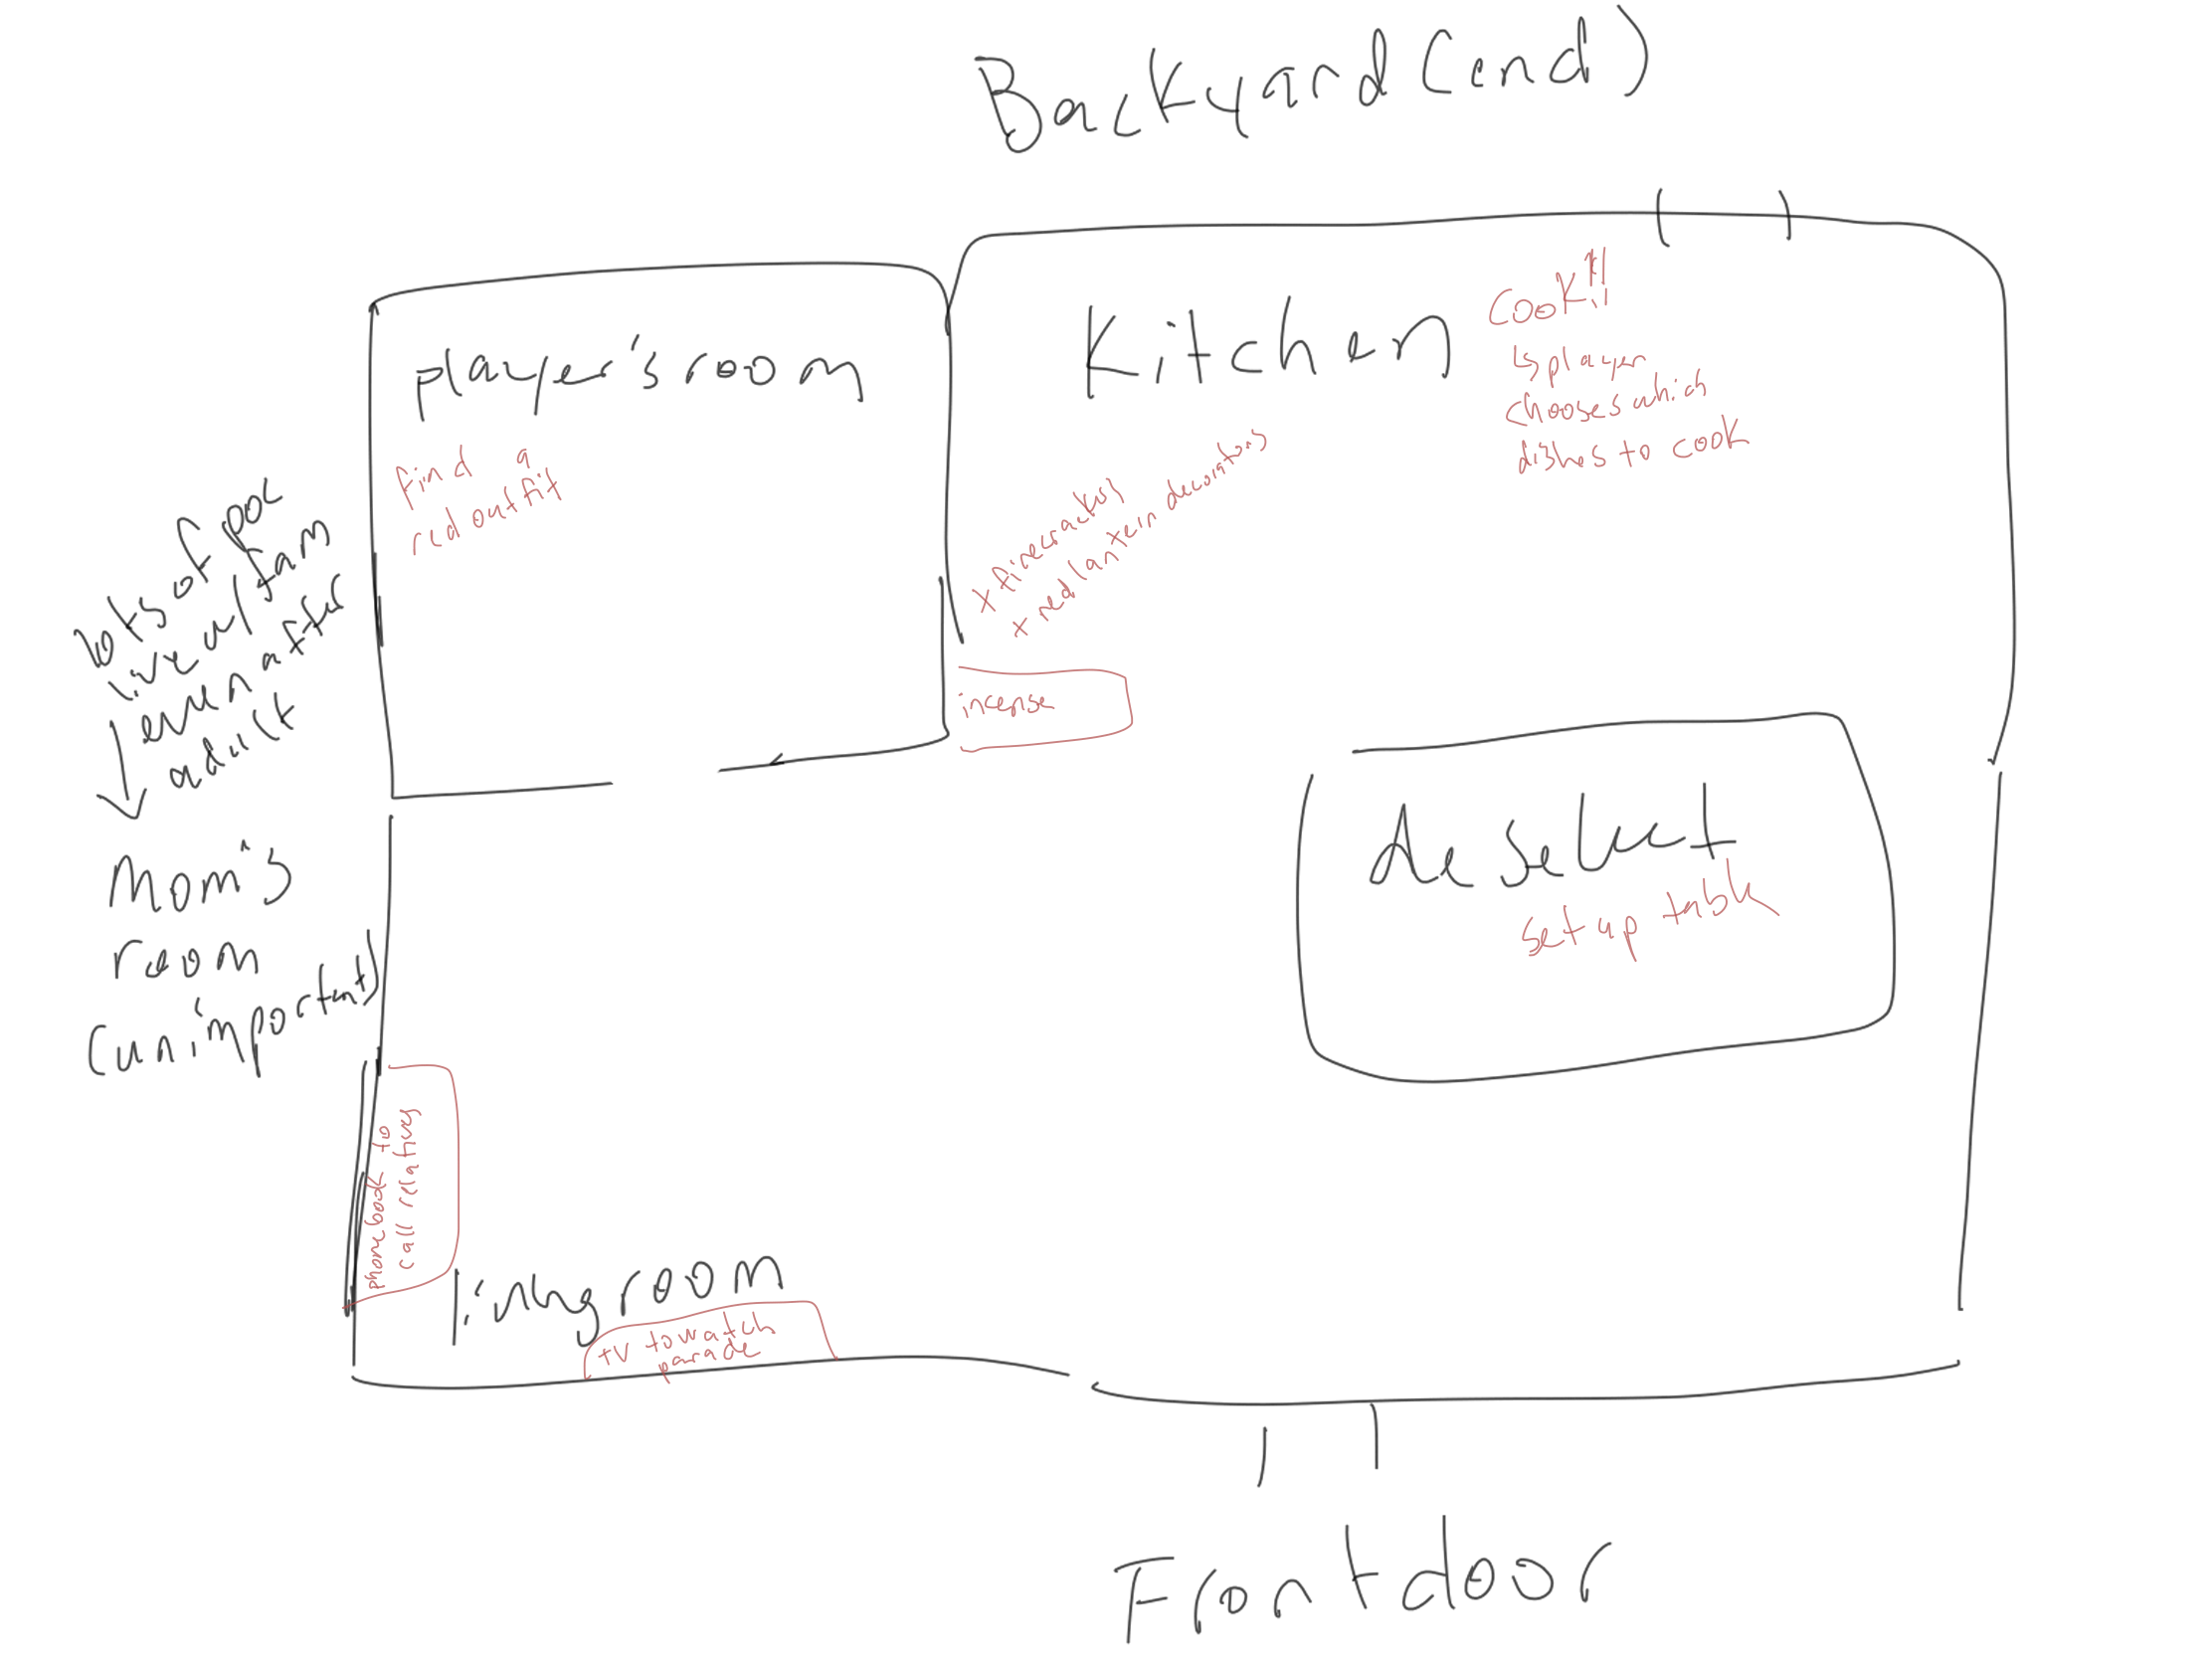 Backyard (end)
player's room
find a
red outfit
Kitchen
Cook!!
↳ player
chooses which
dishes to cook
x firecrackers
x red lantern decorations
incense
lots of poc
live w/ fam
even after
adult
Mom's
room
(unimportant)
de select
set up table
phone book to
call relatives
living room
TV to watch
parade
Front door